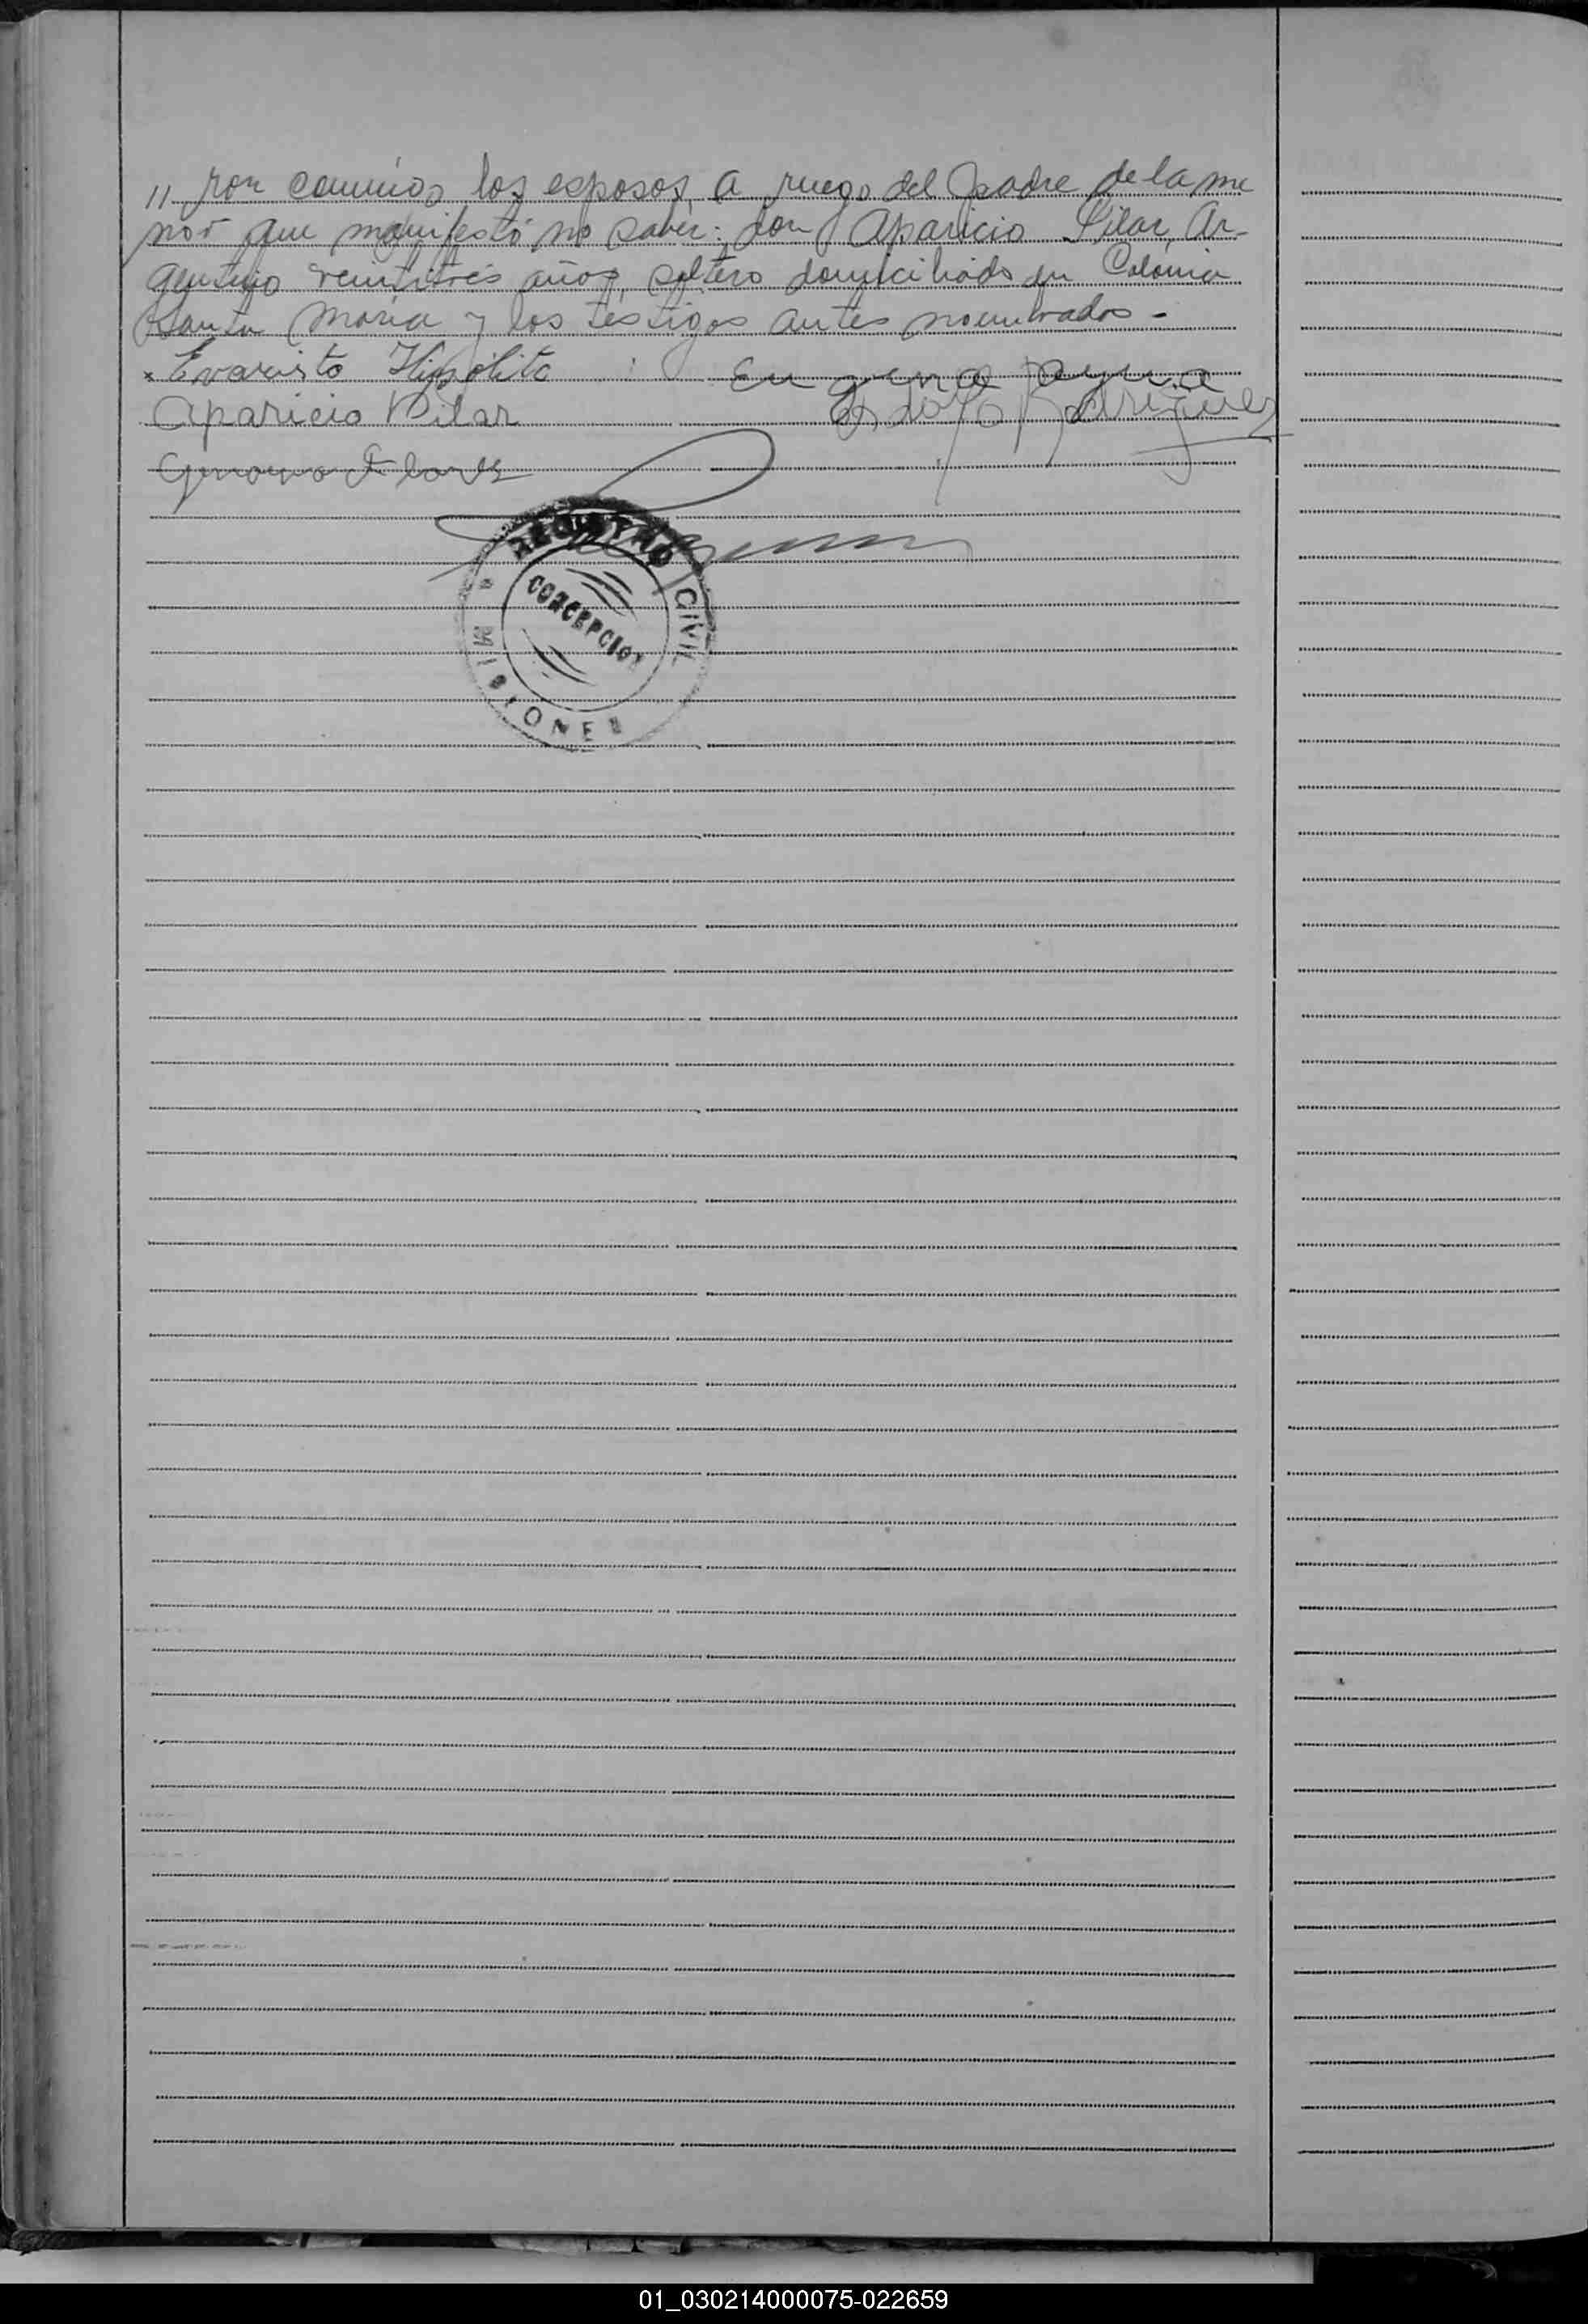 // ron conmigo los esposos, a ruego del padre de la me
nor que manifestó no saber: don Aparicio Pilar, Ar-
gentino veintitrés años, soltero domiciliado en Colonia
Santa María y los testigos antes nombrados -
Evaristo Hippólito
Aparicio Pilar Rodriguez
REGISTRO CIVIL
CONCEPCION
MISIONES
01_030214000075-022659